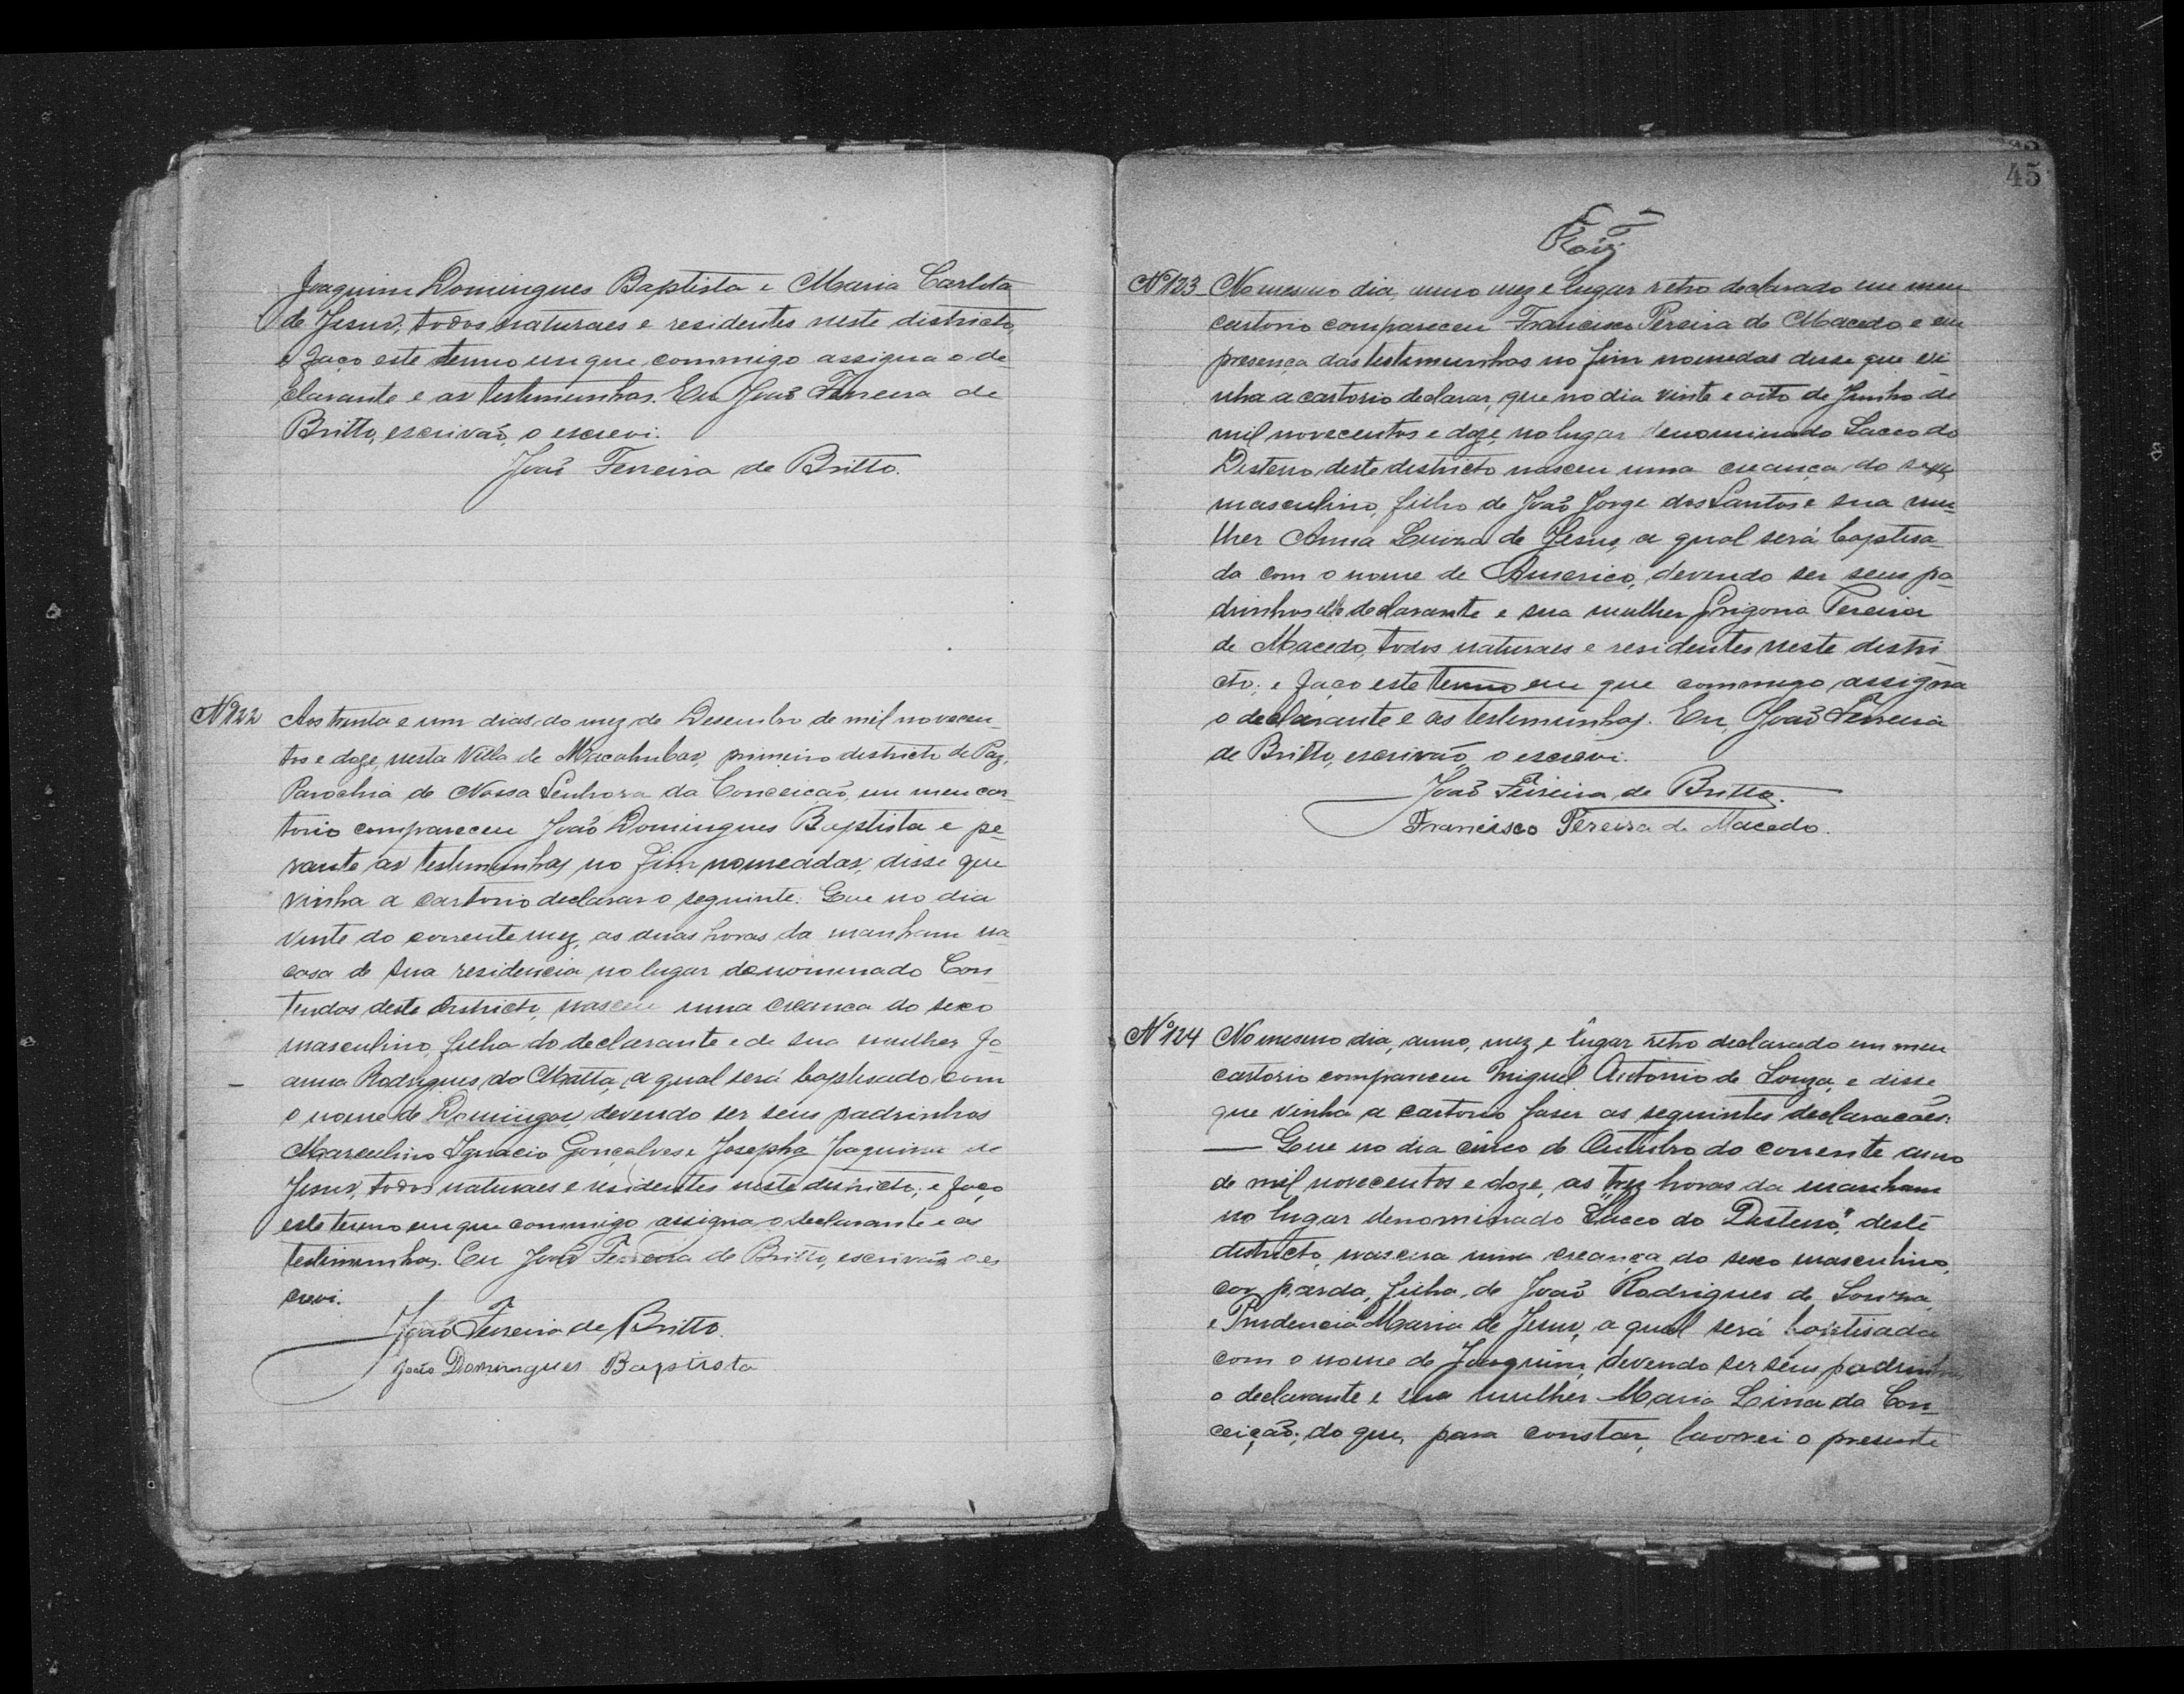 Joaquim Domingues Baptista e Maria Carlota
de Jesus; todos naturaes e residentes neste districto,
e faço este termo em que commigo assigna o de-
clarante e as testimunhas. Eu João Ferreira de
Britto, escrivão, o escrevi.
João Ferreira de Britto.
Nº 122 Aos trinta e um dias do mez de Desembro de mil novecen-
tos e doze, nesta Villa de Macahubas, primeiro districto de Paz,
Parochia de Nossa Senhora da Conceicão, em meu car-
torio compareceu João Domingues Baptista e pe-
rante as testimunhas no fim nomeadas, disse que
vinha a cartorio declarar o seguinte. Que no dia
vinte do corrente mez, as duas horas da manham na
casa de sua residencia no lugar denominado Con-
tendas deste districto, nasceu uma creanca do sexo
masculino, filha do declarante e de sua mulher Jo-
anna Rodrigues da Matta, a qual será baptisado com
o nome de Domingos, devendo ser seus padrinhos
Marculino Ignacio Gonçalves e Josepha Joaquina de
Jesus, todos naturaes e residentes neste districto; e faço
este termo em que commigo assigna o declarante e as
testimunhas. Eu João Ferreira de Britto, escrivão o es-
crevi.
João Ferreira de Britto.
João Domingues Baptista
45
Nº 123 No mesmo dia, anno mez e lugar retro declarado em meu
cartorio compareceu Francisco Pereira de Macedo e em
presença das testimunhas no fim nomedas disse que vi-
nha a cartorio declarar, que no dia vinte e oito de Junho de
mil novecentos e doze, no lugar denominado Sacco do
Desterro, deste districto nasceu uma creança do sexo
masculino, filho de João Jorge dos Santos e sua mu-
lher Anna Luiza de Jesus, a qual será baptisa-
da com o nome de Americo, devendo ser seus pa-
drinhos elle declarante e sua mulher Grigoria Pereira
de Macedo, todos naturaes e residentes neste distri-
cto; e faço este termo em que commigo assigna
o declarante e as testimunhas. Eu, João Ferreira
de Britto, escrivão, o escrevi.
João Ferreira de Britto.
Francisco Pereira de Macedo.
Nº 124 No mesmo dia, anno, mez e lugar retro declarado em meu
cartorio compareceu Miguel Antonio de Souza, e disse
que vinha a cartorio faser as seguintes declaracões:
— Que no dia cinco de Outubro do corrente anno
de mil novecentos e doze, as trez horas da manham
no lugar denominado "Sacco do Desterro", deste
districto, nascera uma creança do sexo masculino,
cor parda, filha, de João Rodrigues de Souza,
e Prudencia Maria de Jesus, a qual será baptisada
com o nome de Joaquim, devendo ser seus padrinhos
o declarante e sua mulher Maria Lina da Con-
ceição; do que, para constar, lavrei o presente